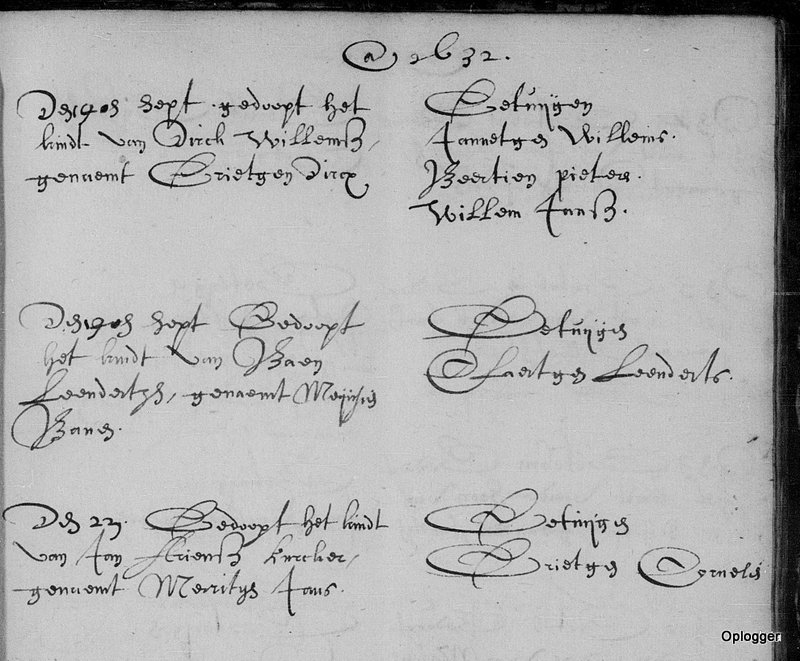 Ao 1632.
Den 19en Sept. gedoopt het
kindt van Dirck Willemsz,
genaemt Grietgen Dircx
Getuijgen
Jannetgen Willems.
Neertien pieters.
Willem Jansz.
Den 19en Sept Gedoopt
het kindt van Baen
Leendertsz, genaemt
Banen.
Getuijgen
Claertgen Leenderts.
Den 22. Gedoopt het kindt
van Jan Ariensz
genaemt Merritgen Jans.
Getuijgen
Grietgen Cornelis
Oplogger